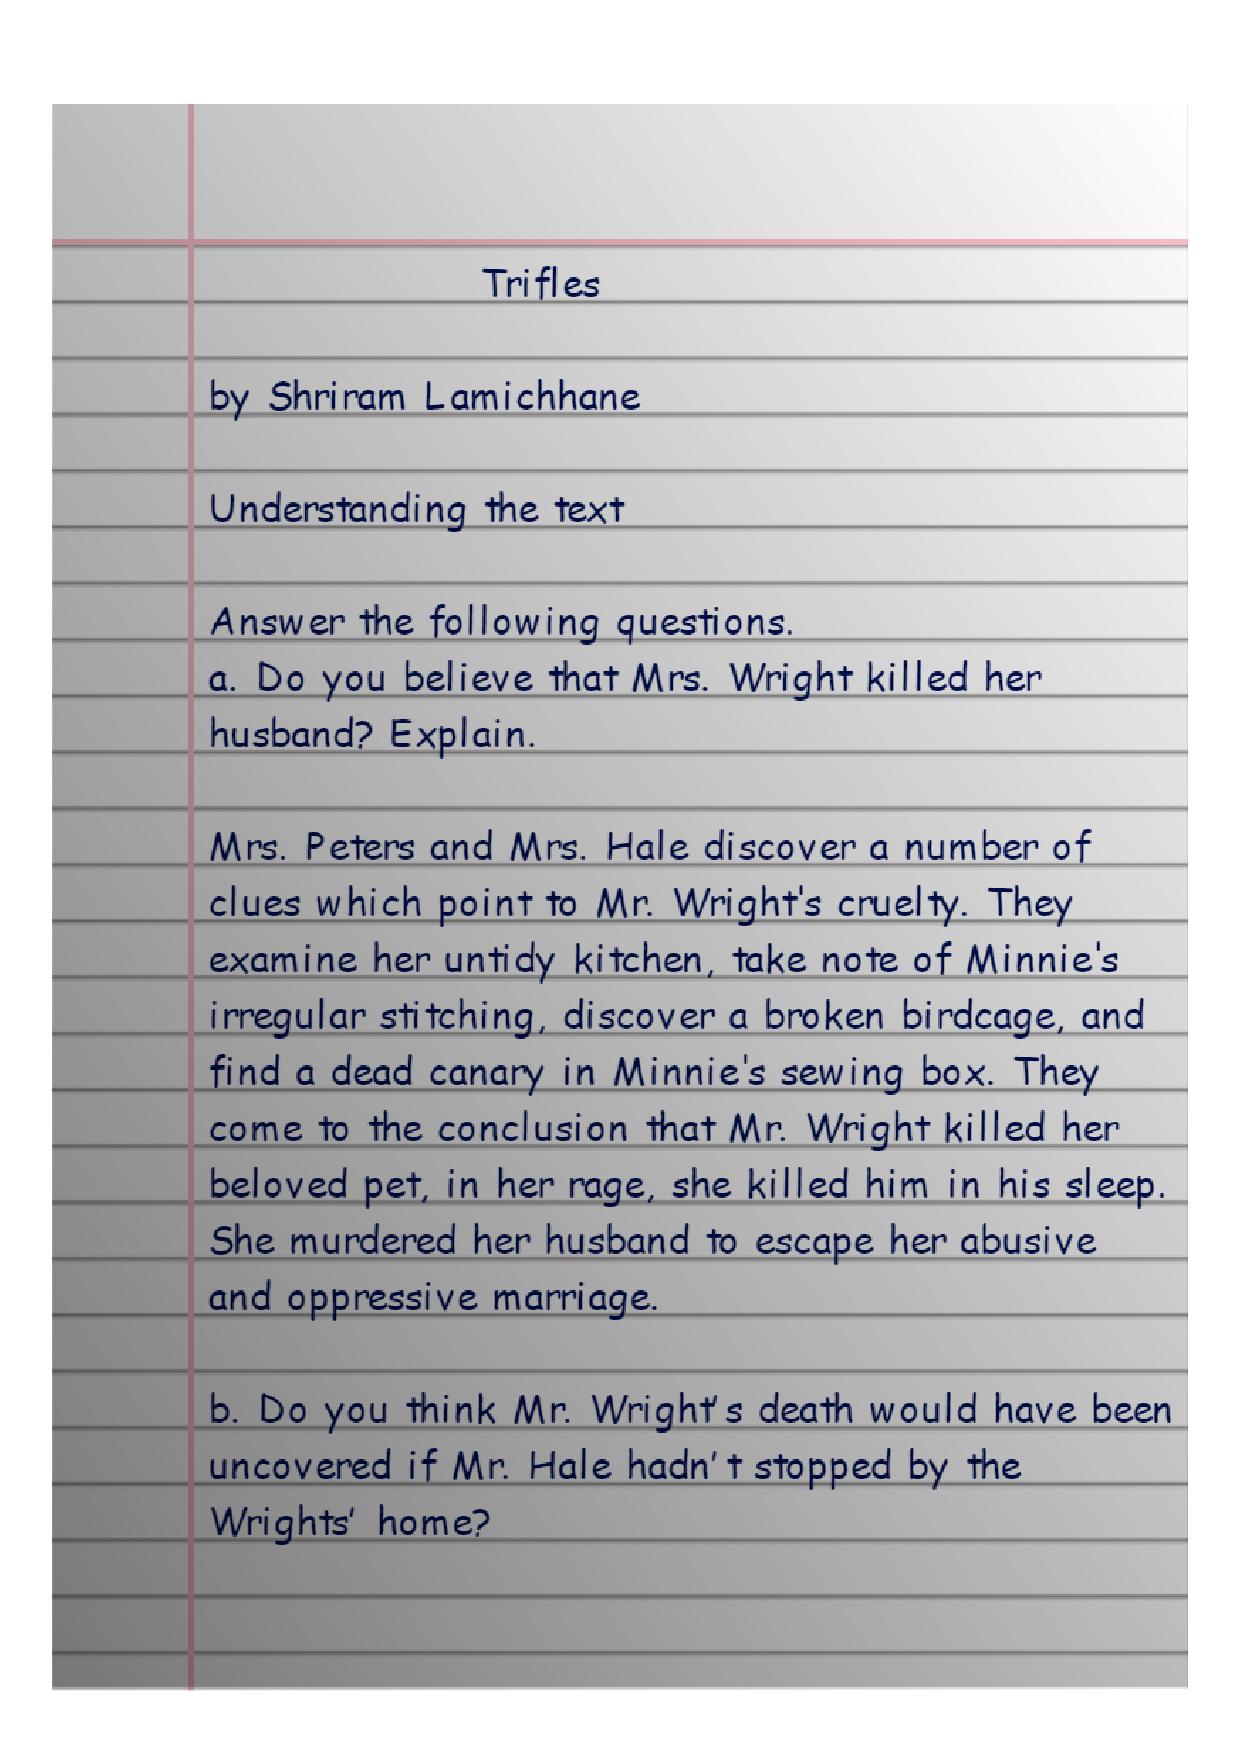 Trifles
by Shriram Lamichhane
Understanding the text
Answer the following questions.
a. Do you believe that Mrs. Wright killed her
husband? Explain.
Mrs. Peters and Mrs. Hale discover a number of
clues which point to Mr. Wright's cruelty. They
examine her untidy kitchen, take note of Minnie's
irregular stitching, discover a broken birdcage, and
find a dead canary in Minnie's sewing box. They
come to the conclusion that Mr. Wright killed her
beloved pet, in her rage, she killed him in his sleep.
She murdered her husband to escape her abusive
and oppressive marriage.
b. Do you think Mr. Wright’s death would have been
uncovered if Mr. Hale hadn’t stopped by the
Wrights’ home?